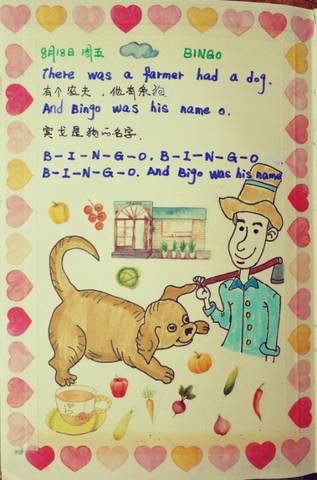 8月18日 周五
BINGO
There was a farmer had a dog.
有个农夫，他有条狗
And Bingo was his name o.
宾戈是狗的名字.
B-I-N-G-O. B-I-N-G-O
B-I-N-G-O. And Bigo was his name